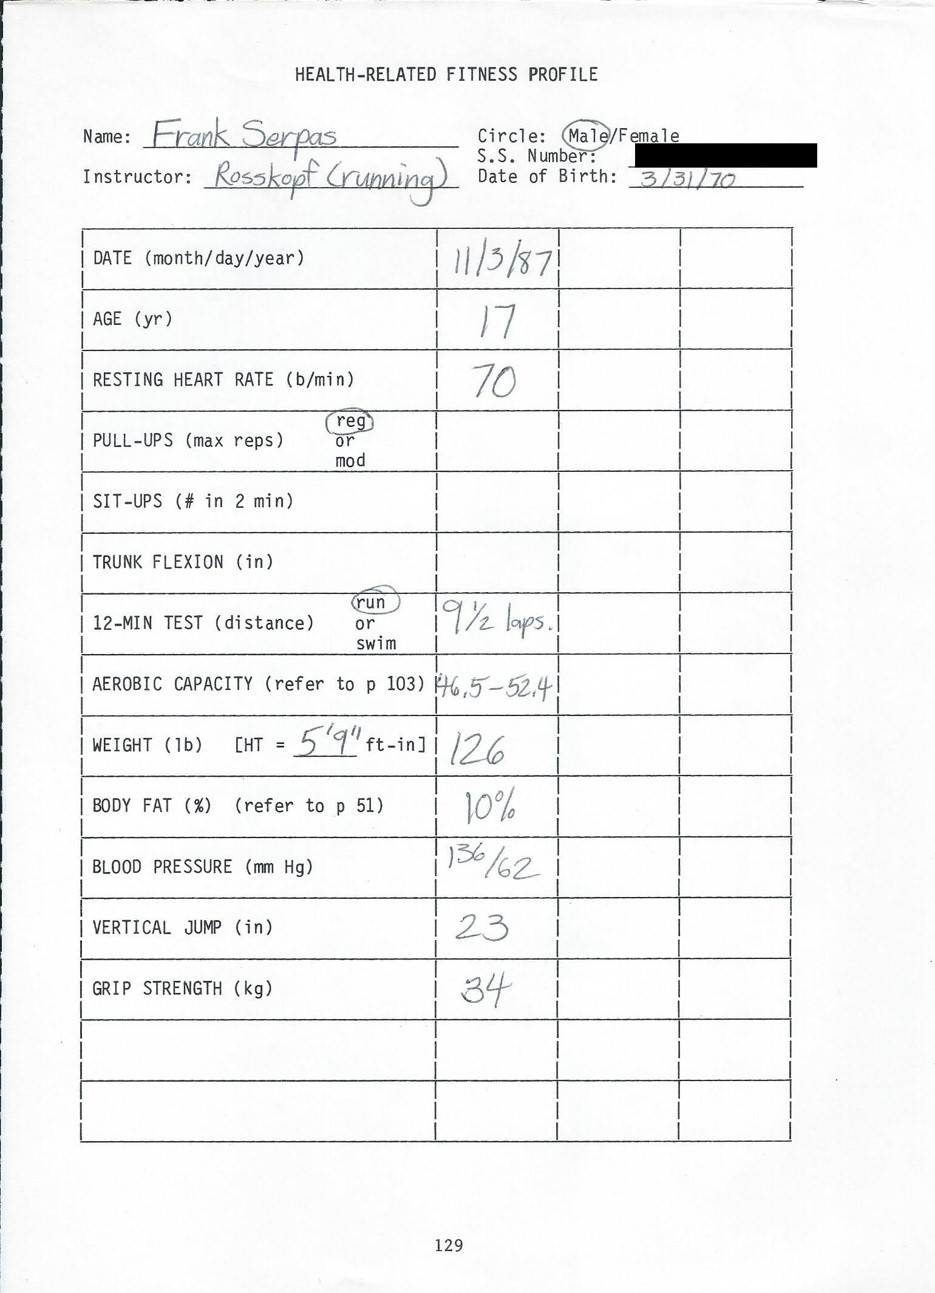 HEALTH-RELATED FITNESS PROFILE
Name: Frank Serpas
Circle: Male/Female
S.S. Number:
Instructor: Rosskopf (running)
Date of Birth: 3/31/70
DATE (month/day/year) 11/3/87
AGE (yr) 17
RESTING HEART RATE (b/min) 70
PULL-UPS (max reps) reg
or
mod
SIT-UPS (# in 2 min)
TRUNK FLEXION (in)
12-MIN TEST (distance) run
or
swim
9 1/2 laps.
AEROBIC CAPACITY (refer to p 103) 46.5-52.4
WEIGHT (lb) [HT = 5'9" ft-in] 126
BODY FAT (%) (refer to p 51) 10%
BLOOD PRESSURE (mm Hg) 136/62
VERTICAL JUMP (in) 23
GRIP STRENGTH (kg) 34
129